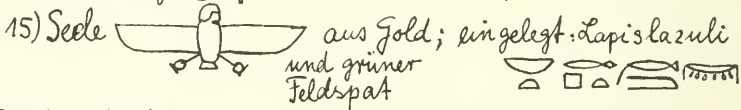 15) Seele aus Gold; eingelegt: Lapislazuli
und grüner
Feldspat